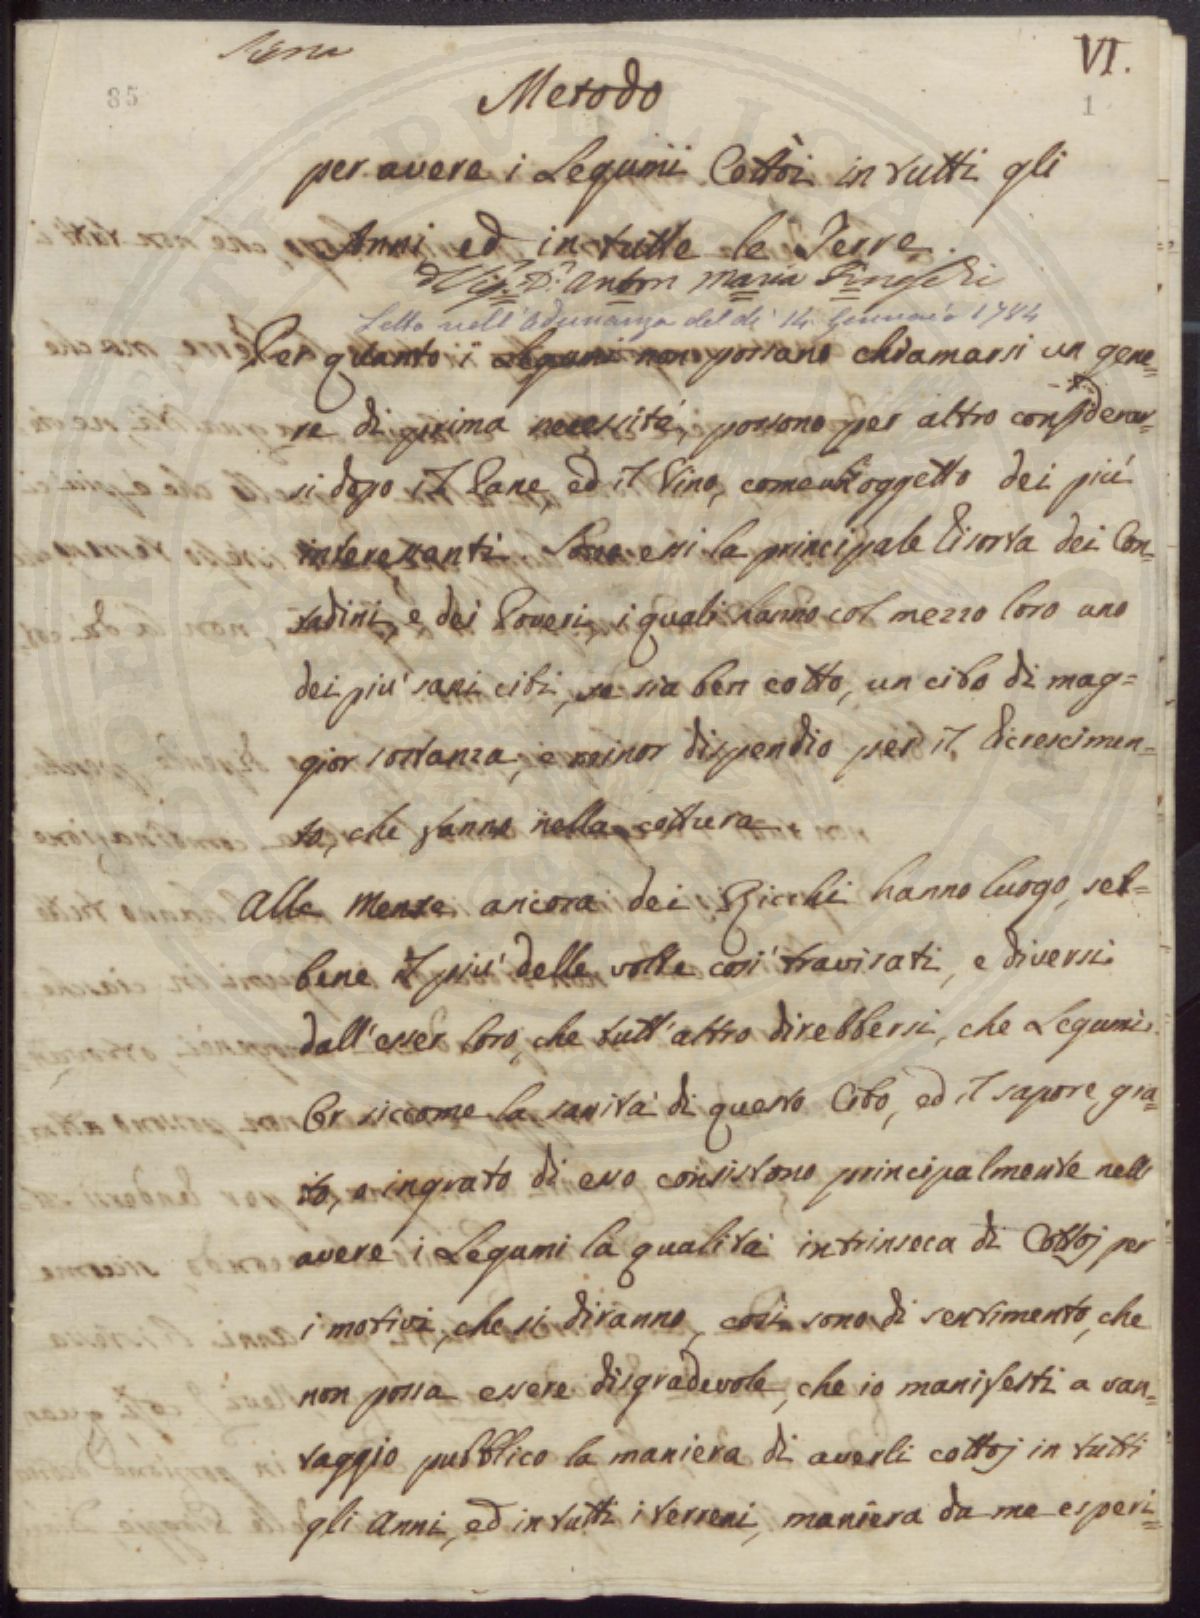 Siena
VI.
85
1
Metodo
per avere i Legumi Cottoi in tutti gli
Anni ed in tutte le Terre.
Del Sig.r D.r Anton Maria
Letto nell'Adunanza del dì 14 Gennaio 1784
Per quanto i Legumi non possano chiamarsi un gene=
re di prima necessità, possono per altro considerar=
si dopo il Pane, ed il Vino, come un oggetto dei più
interessanti. Sono essi la principale risorsa dei Con=
tadini, e dei Poveri, i quali hanno col mezzo loro uno
dei più sani cibi, se sia ben cotto, un cibo di mag=
gior sostanza, e minor dispendio per il ricrescimen=
to, che fanno nella cottura.
Alle Mense ancora dei Ricchi hanno luogo, seb=
bene il più delle volte così travisati, e diversi
dall'esser loro, che tutt'altro direbbersi, che Legumi.
Or siccome la sanità di questo Cibo, ed il sapore gra=
to, o ingrato di esso consistono principalmente nell'
avere i Legumi la qualità intrinseca di Cottoj per
i motivi, che si diranno, così sono di sentimento, che
non possa essere disgradevole, che io manifesti a van=
taggio pubblico la maniera di averli cottoj in tutti
gli Anni, ed in tutti i terreni, maniera da me esperi=